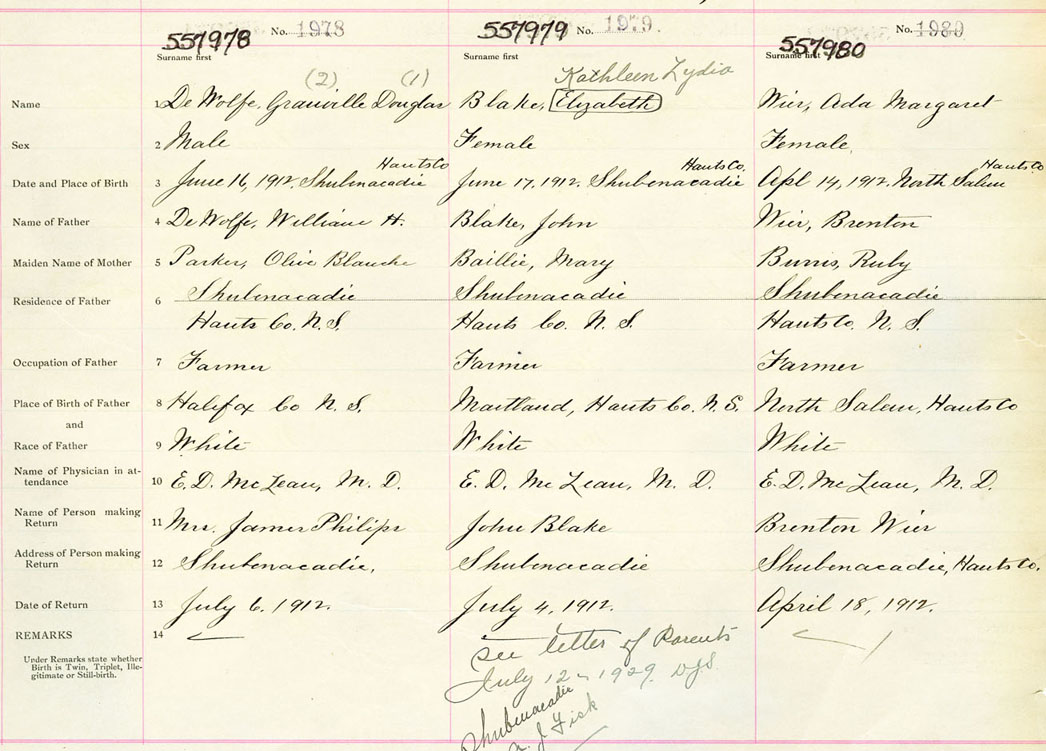 557978 No. 1978 557979 No. 1979. 557980 No. 1980
Surname first Surname first Surname first
(2) (1) Kathleen Lydia
Name 1 De Wolfe, Granville Douglas Blake, Elizabeth Wier, Ada Margaret
Sex 2 Male Female Female
Hants Co Hants Co. Hants Co
Date and Place of Birth 3 June 16, 1912. Shubenacadie June 17, 1912. Shubenacadie Apl 14, 1912. North Salem
Name of Father 4 De Wolfe, William H. Blake, John Wier, Brenton
Maiden Name of Mother 5 Parker, Olive Blanche Baillie, Mary Burris, Ruby
Residence of Father 6 Shubenacadie Shubenacadie Shubenacadie
Hants Co. N. S. Hants Co. N. S. Hants Co. N. S.
Occupation of Father 7 Farmer Farmer Farmer
Place of Birth of Father 8 Halifax Co N. S. Maitland, Hants Co. N. S. North Salem, Hants Co
and
Race of Father 9 White White White
Name of Physician in at-
tendance 10 E. D. McLean, M. D. E. D. McLean, M. D. E. D. McLean, M. D.
Name of Person making
Return 11 Mrs. James Philips John Blake Brenton Wier
Address of Person making
Return 12 Shubenacadie, Shubenacadie Shubenacadie, Hants Co.
Date of Return 13 July 6, 1912. July 4, 1912. April 18, 1912.
REMARKS 14
see letter of Parents
Under Remarks state whether
Birth is Twin, Triplet, Ille-
gitimate or Still-birth.
July 12 1929.
Shubenacadie
J Fisk